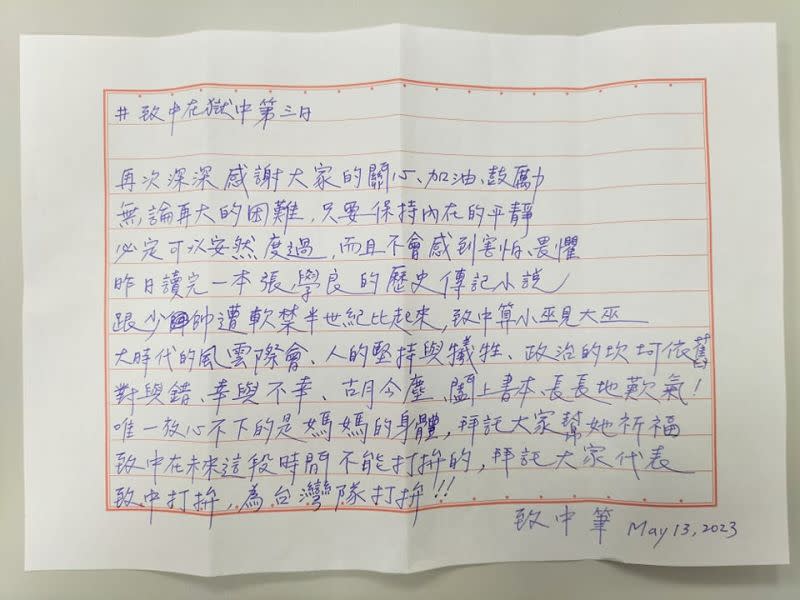 #致中在獄中第三日
再次深深感謝大家的關心、加油、鼓勵
無論再大的困難,只要保持內在的平靜
必定可以安然度過,而且不會感到害怕、畏懼
昨日讀完一本張學良的歷史傳記小說
跟少帥遭軟禁半世紀比起來,致中算小巫見大巫
大時代的風雲際會、人的堅持與犧牲、政治的坎坷依舊
對與錯、幸與不幸、古月今塵、闔上書本、長長地歎氣!
唯一放心不下的是媽媽的身體,拜託大家幫她祈福
致中在未來這段時間不能打拚的,拜託大家代表
致中打拚,為台灣隊打拚!!
致中筆 May 13, 2023